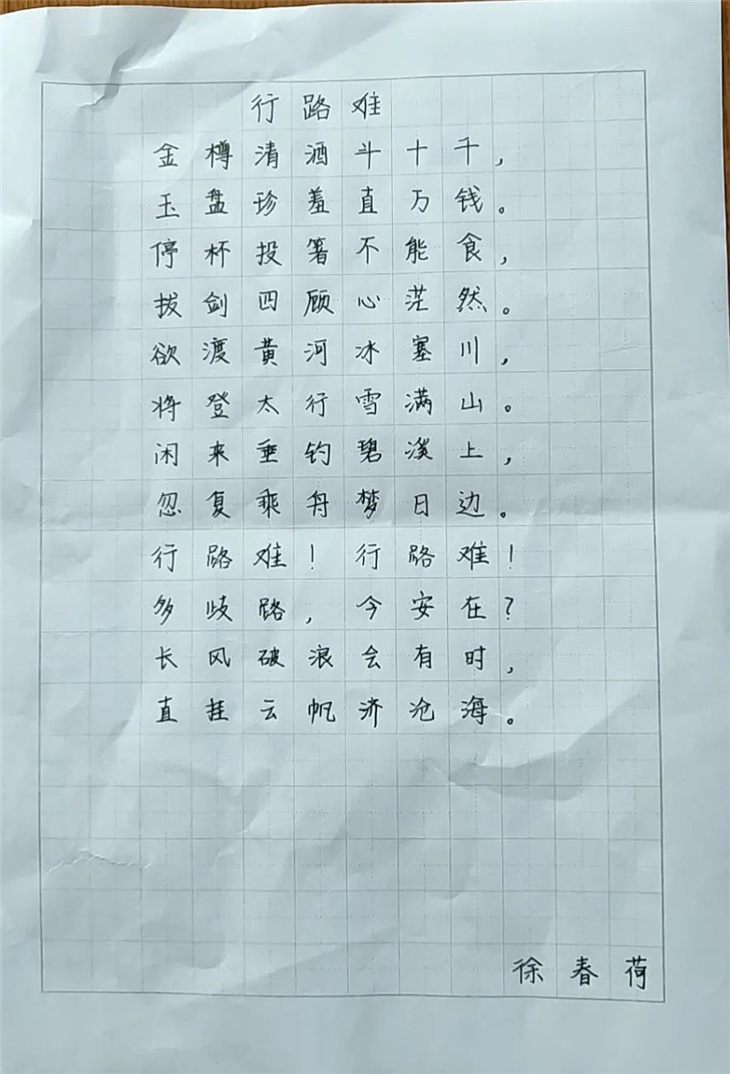 行路难
金樽清酒斗十千,
玉盘珍羞直万钱。
停杯投箸不能食,
拔剑四顾心茫然。
欲渡黄河冰塞川,
将登太行雪满山。
闲来垂钓碧溪上,
忽复乘舟梦日边。
行路难!行路难!
多歧路,今安在?
长风破浪会有时,
直挂云帆济沧海。
徐春荷